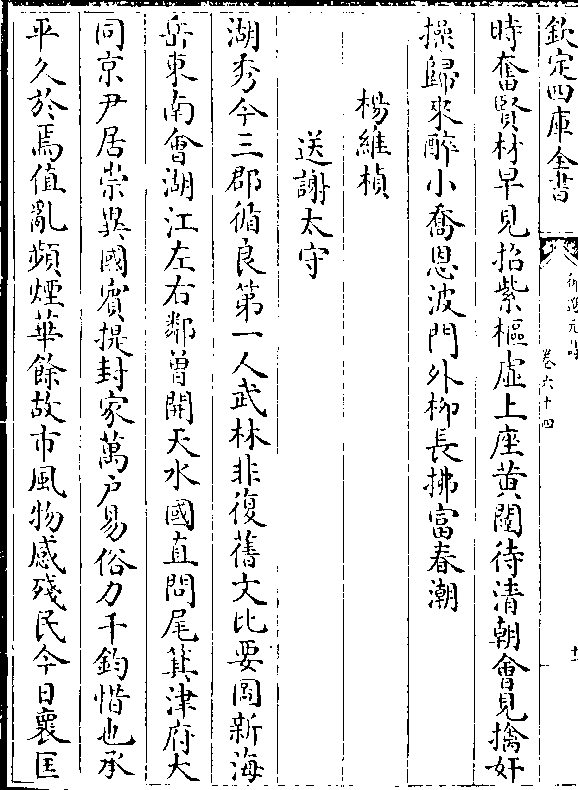 欽定四庫全書
卷六十四
時奮賢材早見招紫樞虛上座黄閣待清朝會見擒奸
操歸來醉小喬恩波門外栁長拂富春潮
楊維楨
送謝太守
湖秀今三郡循良第一人武林非復舊文比要圖新海
岳東南會湖江左右鄰曽開天水國直問尾箕津府大
同京尹居崇異國賓提封家萬户易俗力千鈞惜也承
平久於焉值亂頻煙華餘故市風物感殘民今日襄匡